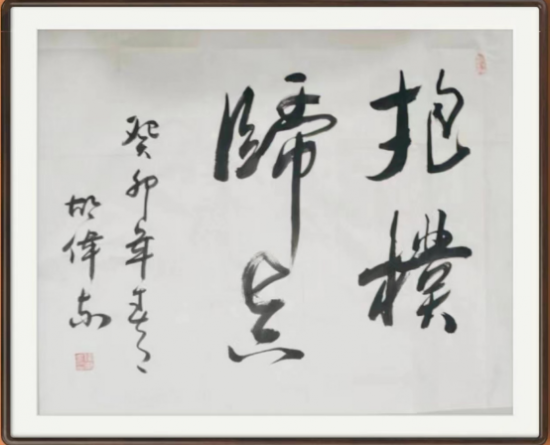 抱樸
歸真
癸卯年春
胡偉